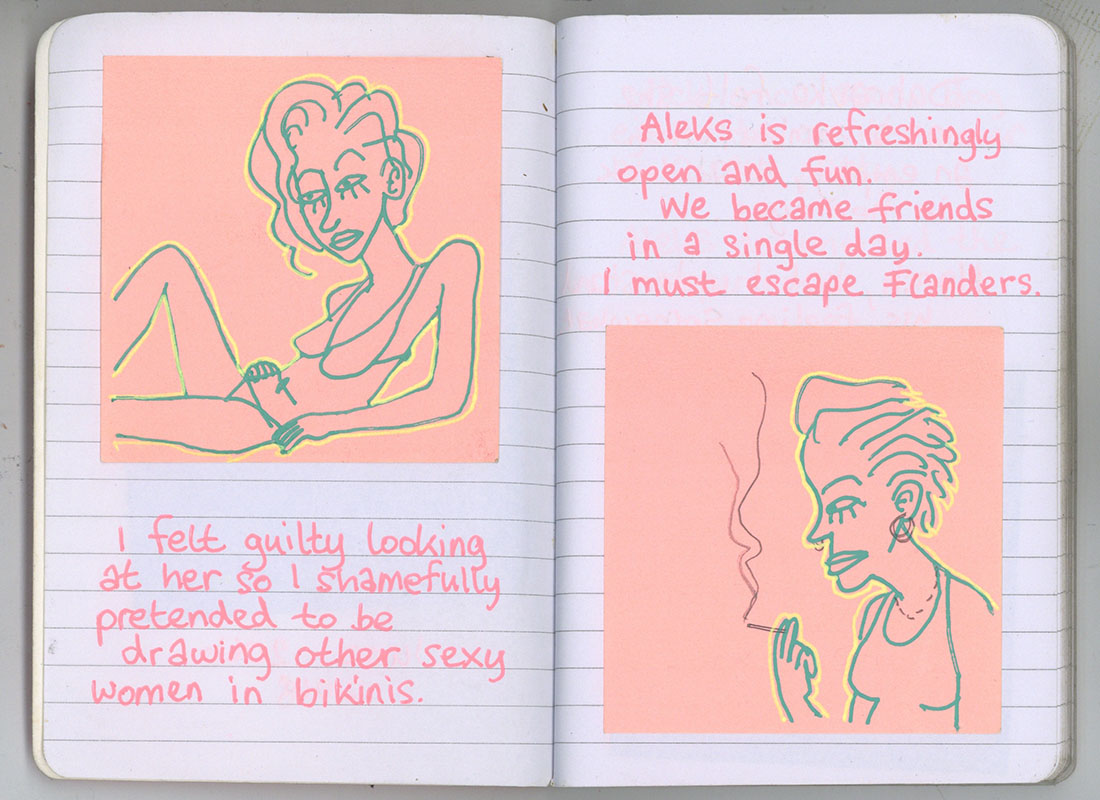 I felt guilty looking
at her so I shamefully
pretended to be
drawing other sexy
women in bikinis.
Aleks is refreshingly
open and fun.
We became friends
in a single day.
I must escape Flanders.